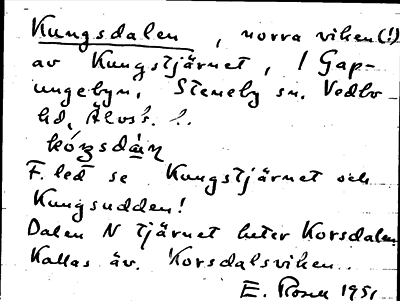 Kungsdalen, norra viken (!)
av Kungstjärnet, i Gap-
ungebyn, Steneby sn. Vedbo
hd, Älvs.
F. led se Kungstjärnet och
Kungsudden!
Dalen N tjärnet heter Korsdalen
Kallas äv. Korsdalsviken.
E. Rosell 1951